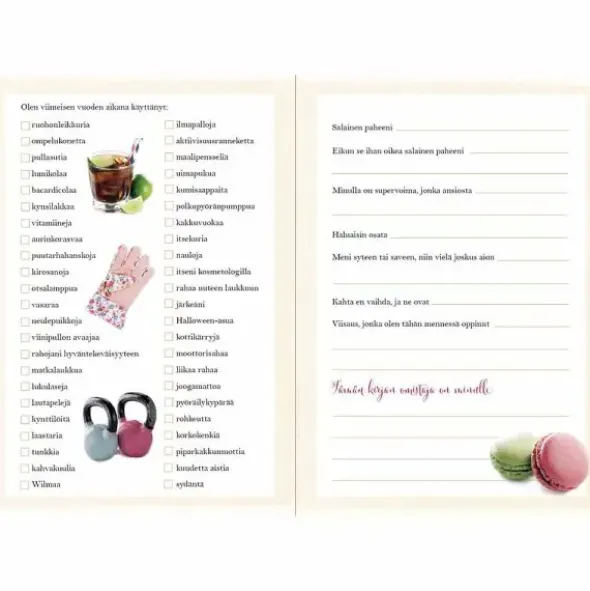 Olen viimeisen vuoden aikana käyttänyt:
ruohonleikkuria
ompelukonetta
pullasutia
lumikolaa
bacardicolaa
kynsilakkaa
vitamiineja
aurinkorasvaa
puutarhahanskoja
kirosanoja
otsalamppua
vasaraa
neulepuikkoja
viinipullon avaajaa
rahojani hyväntekeväisyyteen
matkalaukkua
lukulaseja
lautapelejä
kynttilöitä
laastaria
tunkkia
kahvakuulia
Wilmaa
ilmapalloja
aktiivisuusranneketta
maalipensseliä
uimapukua
kumisaappaita
polkupyöränpumppua
kakkuvuokaa
itsekuria
nauloja
itseni kosmetologilla
rahaa uuteen laukkuun
järkeäni
Halloween-asua
kottikärryjä
moottorisahaa
liikaa rahaa
joogamattoa
pyöräilykypärää
rohkeutta
korkokenkiä
piparkakkumuottia
kuudetta aistia
sydäntä
Salainen paheeni
Eikun se ihan oikea salainen paheeni
Minulla on supervoima, jonka ansiosta
Haluaisin osata
Meni syteen tai saveen, niin vielä joskus aion
Kahta en vaihda, ja ne ovat
Viisaus, jonka olen tähän mennessä oppinut
Tämän kirjan omistaja on minulle